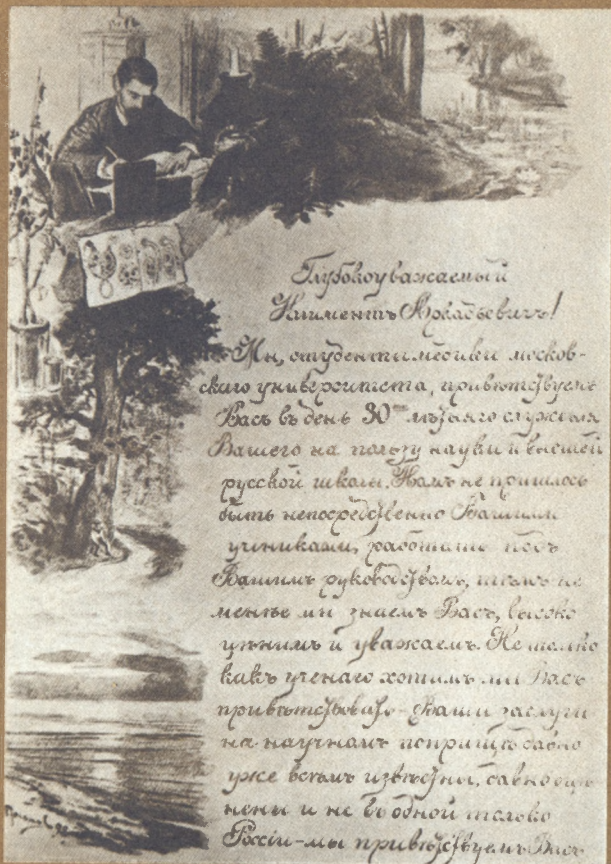 Глубокоуважаемый
Климентъ Аркадьевичъ!
Мы, студенты медики москов-
скаго университета, привѣтствуемъ
Васъ въ день 30 лѣтняго служенія
Вашего на пользу науки и высшей
русской школы. Намъ не пришлось
быть непосредственно Вашими
учениками, работать подъ
Вашимъ руководствомъ, тѣмъ не
менѣе мы знаемъ Васъ, высоко
цѣнимъ и уважаемъ. Не только
какъ ученаго хотимъ мы Васъ
привѣтствовать – Ваши заслуги
на научномъ поприщѣ давно
уже всѣмъ извѣстны, давно оцѣ-
нены и не въ одной только
Россіи – мы привѣтствуемъ Васъ